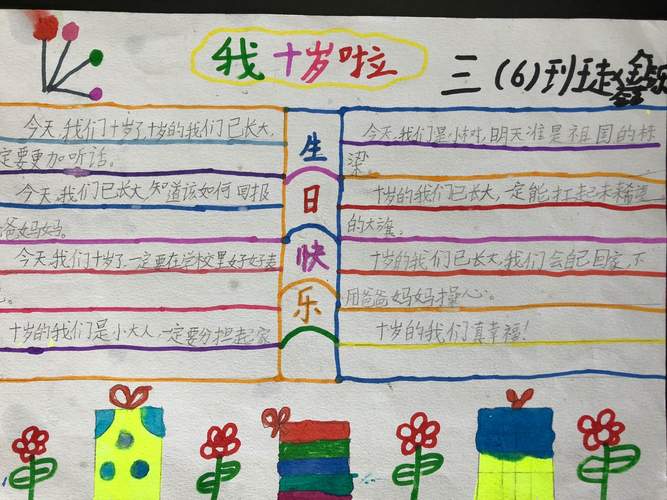 我十岁啦
三(6)班赵鑫
今天，我们十岁了，十岁的我们已长大，
定要更加听话。
今天，我们已长大，知道该如何回报
爸爸妈妈。
今天，我们十岁了，一定要在学校里好好表
十岁的我们是小大人，一定要分担起家
生
日
快
乐
今天，我们是小树叶，明天准是祖国的栋
梁。
十岁的我们已长大，一定能扛起未来
的大旗。
十岁的我们已长大，我们会自己回家，不
用爸爸妈妈操心。
十岁的我们真幸福！